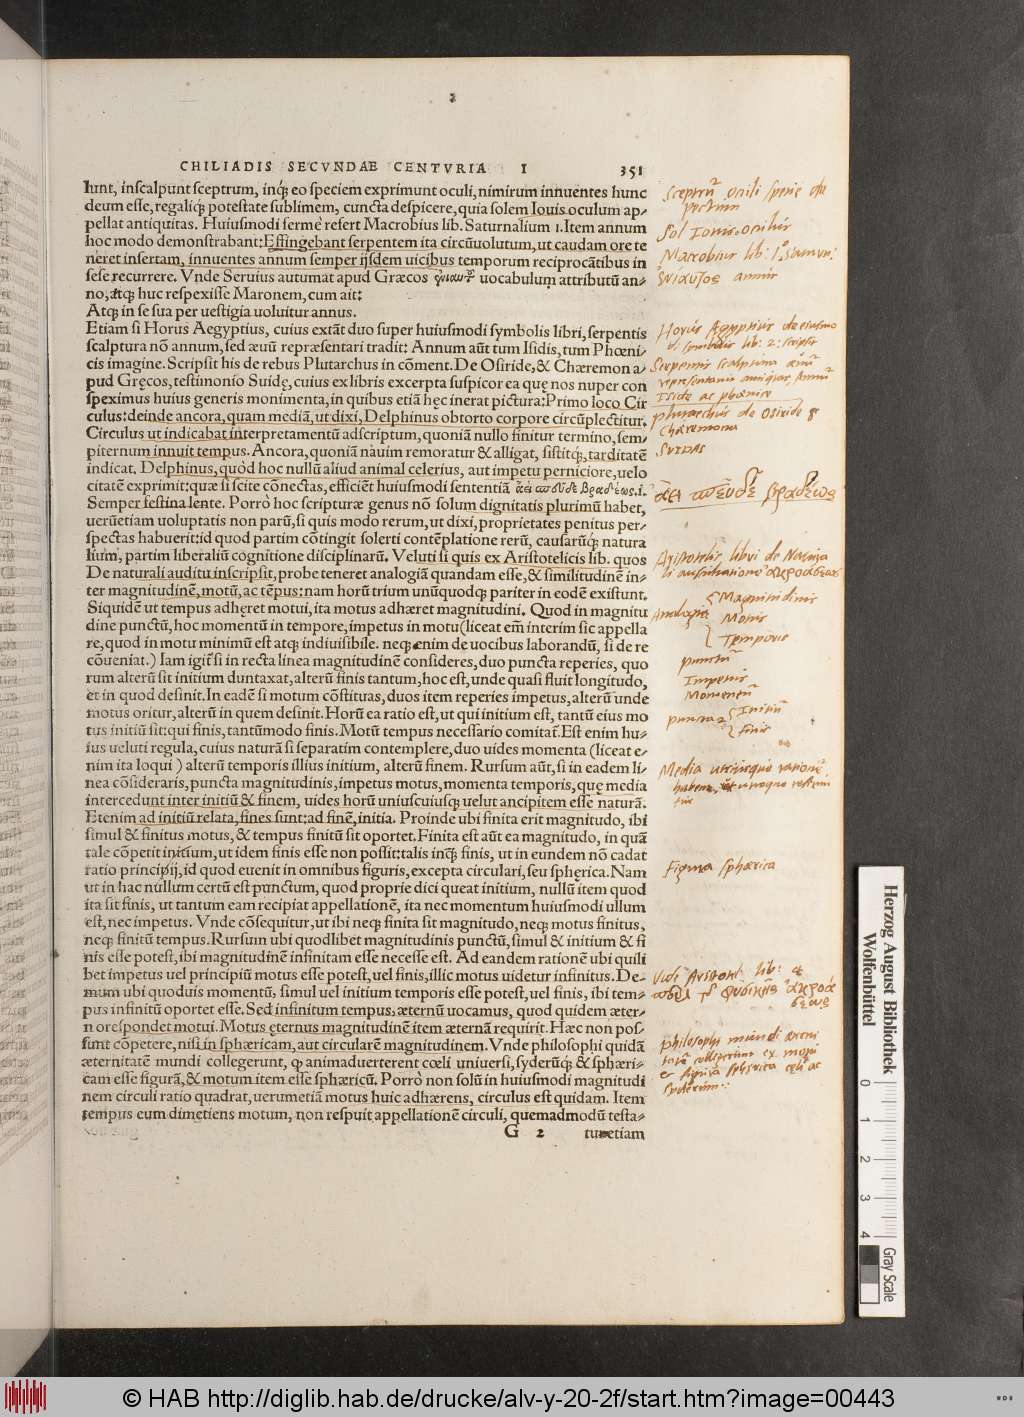 CHILIADIS SECVNDAE CENTVRIA I 351
lunt, inscalpunt sceptrum, inq́ꝫ eo speciem exprimunt oculi, nimirum innuentes hunc
deum esse, regaliq́ꝫ potestate sublimem, cuncta despicere, quia solem Iouis oculum ap-
pellat antiquitas. Huiusmodi fermè refert Macrobius lib. Saturnalium 1. Item annum
hoc modo demonstrabant: Effingebant serpentem ita circũuolutum, ut caudam ore te
neret insertam, innuentes annum semper ijsdem uicibus temporum reciprocãtibus in
sese recurrere. Vnde Seruius autumat apud Græcos uocabulum attributũ an-
no, atq́ꝫ huc respexisse Maronem, cum ait:
Atq́ꝫ in se sua per uestigia uoluitur annus.
Etiam si Horus Aegyptius, cuius extãt duo super huiusmodi symbolis libri, serpentis
scalptura nõ annum, sed æuũ repræsentari tradit: Annum aũt tum Isidis, tum Phœni-
cis imagine. Scripsit his de rebus Plutarchus in cõment. De Osiride, & Chæremon a-
pud Gręcos, testimonio Suidę, cuius ex libris excerpta suspicor ea quę nos nuper con
speximus huius generis monimenta, in quibus etiã hęc inerat pictura: Primo loco Cir
culus: deinde ancora, quam mediã, ut dixi, Delphinus obtorto corpore circũplectitur.
Circulus ut indicabat interpretamentũ adscriptum, quoniã nullo finitur termino, sem-
piternum innuit tempus. Ancora, quoniã nauim remoratur & alligat, sistitq́ꝫ, tarditatẽ
indicat. Delphinus, quòd hoc nullũ aliud animal celerius, aut impetu perniciore, uelo
citatẽ exprimit: quæ si scite cõnectas, efficiẽt huiusmodi sententiã ἀεὶ σπεῦδε βραδέως .i.
Semper festina lente. Porrò hoc scripturæ genus nõ solum dignitatis plurimũ habet,
uerũetiam uoluptatis non parũ, si quis modo rerum, ut dixi, proprietates penitus per-
spectas habuerit: id quod partim cõtingit solerti contẽplatione rerũ, causarũq́ꝫ natura
lium, partim liberaliũ cognitione disciplinarũ. Veluti si quis ex Aristotelicis lib. quos
De naturali auditu inscripsit, probe teneret analogiã quandam esse, & similitudinẽ in-
ter magnitudinẽ, motũ, ac tẽpus: nam horũ trium unũquodq́ꝫ pariter in eodẽ existunt.
Siquidẽ ut tempus adhęret motui, ita motus adhæret magnitudini. Quod in magnitu
dine punctũ, hoc momentũ in tempore, impetus in motu (liceat em̃ interim sic appella
re, quod in motu minimũ est atq́ꝫ indiuisibile. neq́ꝫ enim de uocibus laborandũ, si de re
cõueniat.) Iam igit̃ si in recta linea magnitudinẽ consideres, duo puncta reperies, quo
rum alterũ sit initium duntaxat, alterũ finis tantum, hoc est, unde quasi fluit longitudo,
et in quod desinit. In eadẽ si motum cõstituas, duos item reperies impetus, alterũ unde
motus oritur, alterũ in quem desinit. Horũ ea ratio est, ut qui initium est, tantũ eius mo
tus initiũ sit: qui finis, tantũmodo finis. Motũ tempus necessario comitat̃. Est enim hu-
ius ueluti regula, cuius naturã si separatim contemplere, duo uides momenta (liceat e-
nim ita loqui) alterũ temporis illius initium, alterũ finem. Rursum aũt, si in eadem li-
nea cõsideraris, puncta magnitudinis, impetus motus, momenta temporis, quę media
intercedunt inter initiũ & finem, uides horũ uniuscuiusq́ꝫ uelut ancipitem esse naturã.
Etenim ad initiũ relata, fines sunt: ad finẽ, initia. Proinde ubi finita erit magnitudo, ibi
simul & finitus motus, & tempus finitũ sit oportet. Finita est aũt ea magnitudo, in quã
tale cõpetit initium, ut idem finis esse non possit: talis inq́ꝫ finis, ut in eundem nõ cadat
ratio principij, id quod euenit in omnibus figuris, excepta circulari, seu sphęrica. Nam
ut in hac nullum certũ est punctum, quod proprie dici queat initium, nullũ item quod
ita sit finis, ut tantum eam recipiat appellationẽ, ita nec momentum huiusmodi ullum
est, nec impetus. Vnde cõsequitur, ut ibi neq́ꝫ finita sit magnitudo, neq́ꝫ motus finitus,
neq́ꝫ finitũ tempus. Rursum ubi quodlibet magnitudinis punctũ, simul & initium & fi
nis esse potest, ibi magnitudinẽ infinitam esse necesse est. Ad eandem rationẽ ubi quili
bet impetus uel principiũ motus esse potest, uel finis, illic motus uidetur infinitus. De-
mum ubi quoduis momentũ, simul uel initium temporis esse potest, uel finis, ibi tem-
pus infinitũ oportet esse. Sed infinitum tempus, æternũ uocamus, quod quidem æter-
no respondet motui. Motus ęternus magnitudinẽ item æternã requirit. Hæc non pos-
sunt cõpetere, nisi in sphæricam, aut circularẽ magnitudinem. Vnde philosophi quidã
æternitatẽ mundi collegerunt, ꝙ animaduerterent cœli uniuersi, syderũq́ꝫ & sphæri-
cam esse figurã, & motum item esse sphæricũ. Porrò non solũ in huiusmodi magnitudi
nem circuli ratio quadrat, uerumetiã motus huic adhærens, circulus est quidam. Item
tempus eum dimetiens motum, non respuit appellationẽ circuli, quemadmodũ testa-
G 2 tur etiam
Sceptrũ oculi specie
Sol Iouis oculus
Macrobius lib: 1º Saturn:
ἐνίαυτος annus
Horus Ægyptius de eiusmo
di symbolis lib: 2: scripsit
Serpentis scalptura æuũ
representant antiquitas Annũ
Iside ac phœnice
plutarchus de Osiride &
Chæremona
SVIDAS
ἀεὶ σπεῦδε βραδέως
Aristotelis libri de Natura
li auscultatione ἀκροάσεως
Analogia
Magnitudinis
Motus
Temporis
punctũ
Impetus
Momentũ
puncta 2
Initiũ
finis
Media utriusque rationẽ
habent,
Figura sphærica
Vide Aristotel: lib:
φυσικῆς ἀκροά
σεως
philosophi mundi æterni
tatẽ collegerunt ex motu
et figura sphærica cœli ac
syderum:
Herzog August Bibliothek
Wolfenbüttel
0 1 2 3 4
Gray Scale
© HAB http://diglib.hab.de/drucke/alv-y-20-2f/start.htm?image=00443